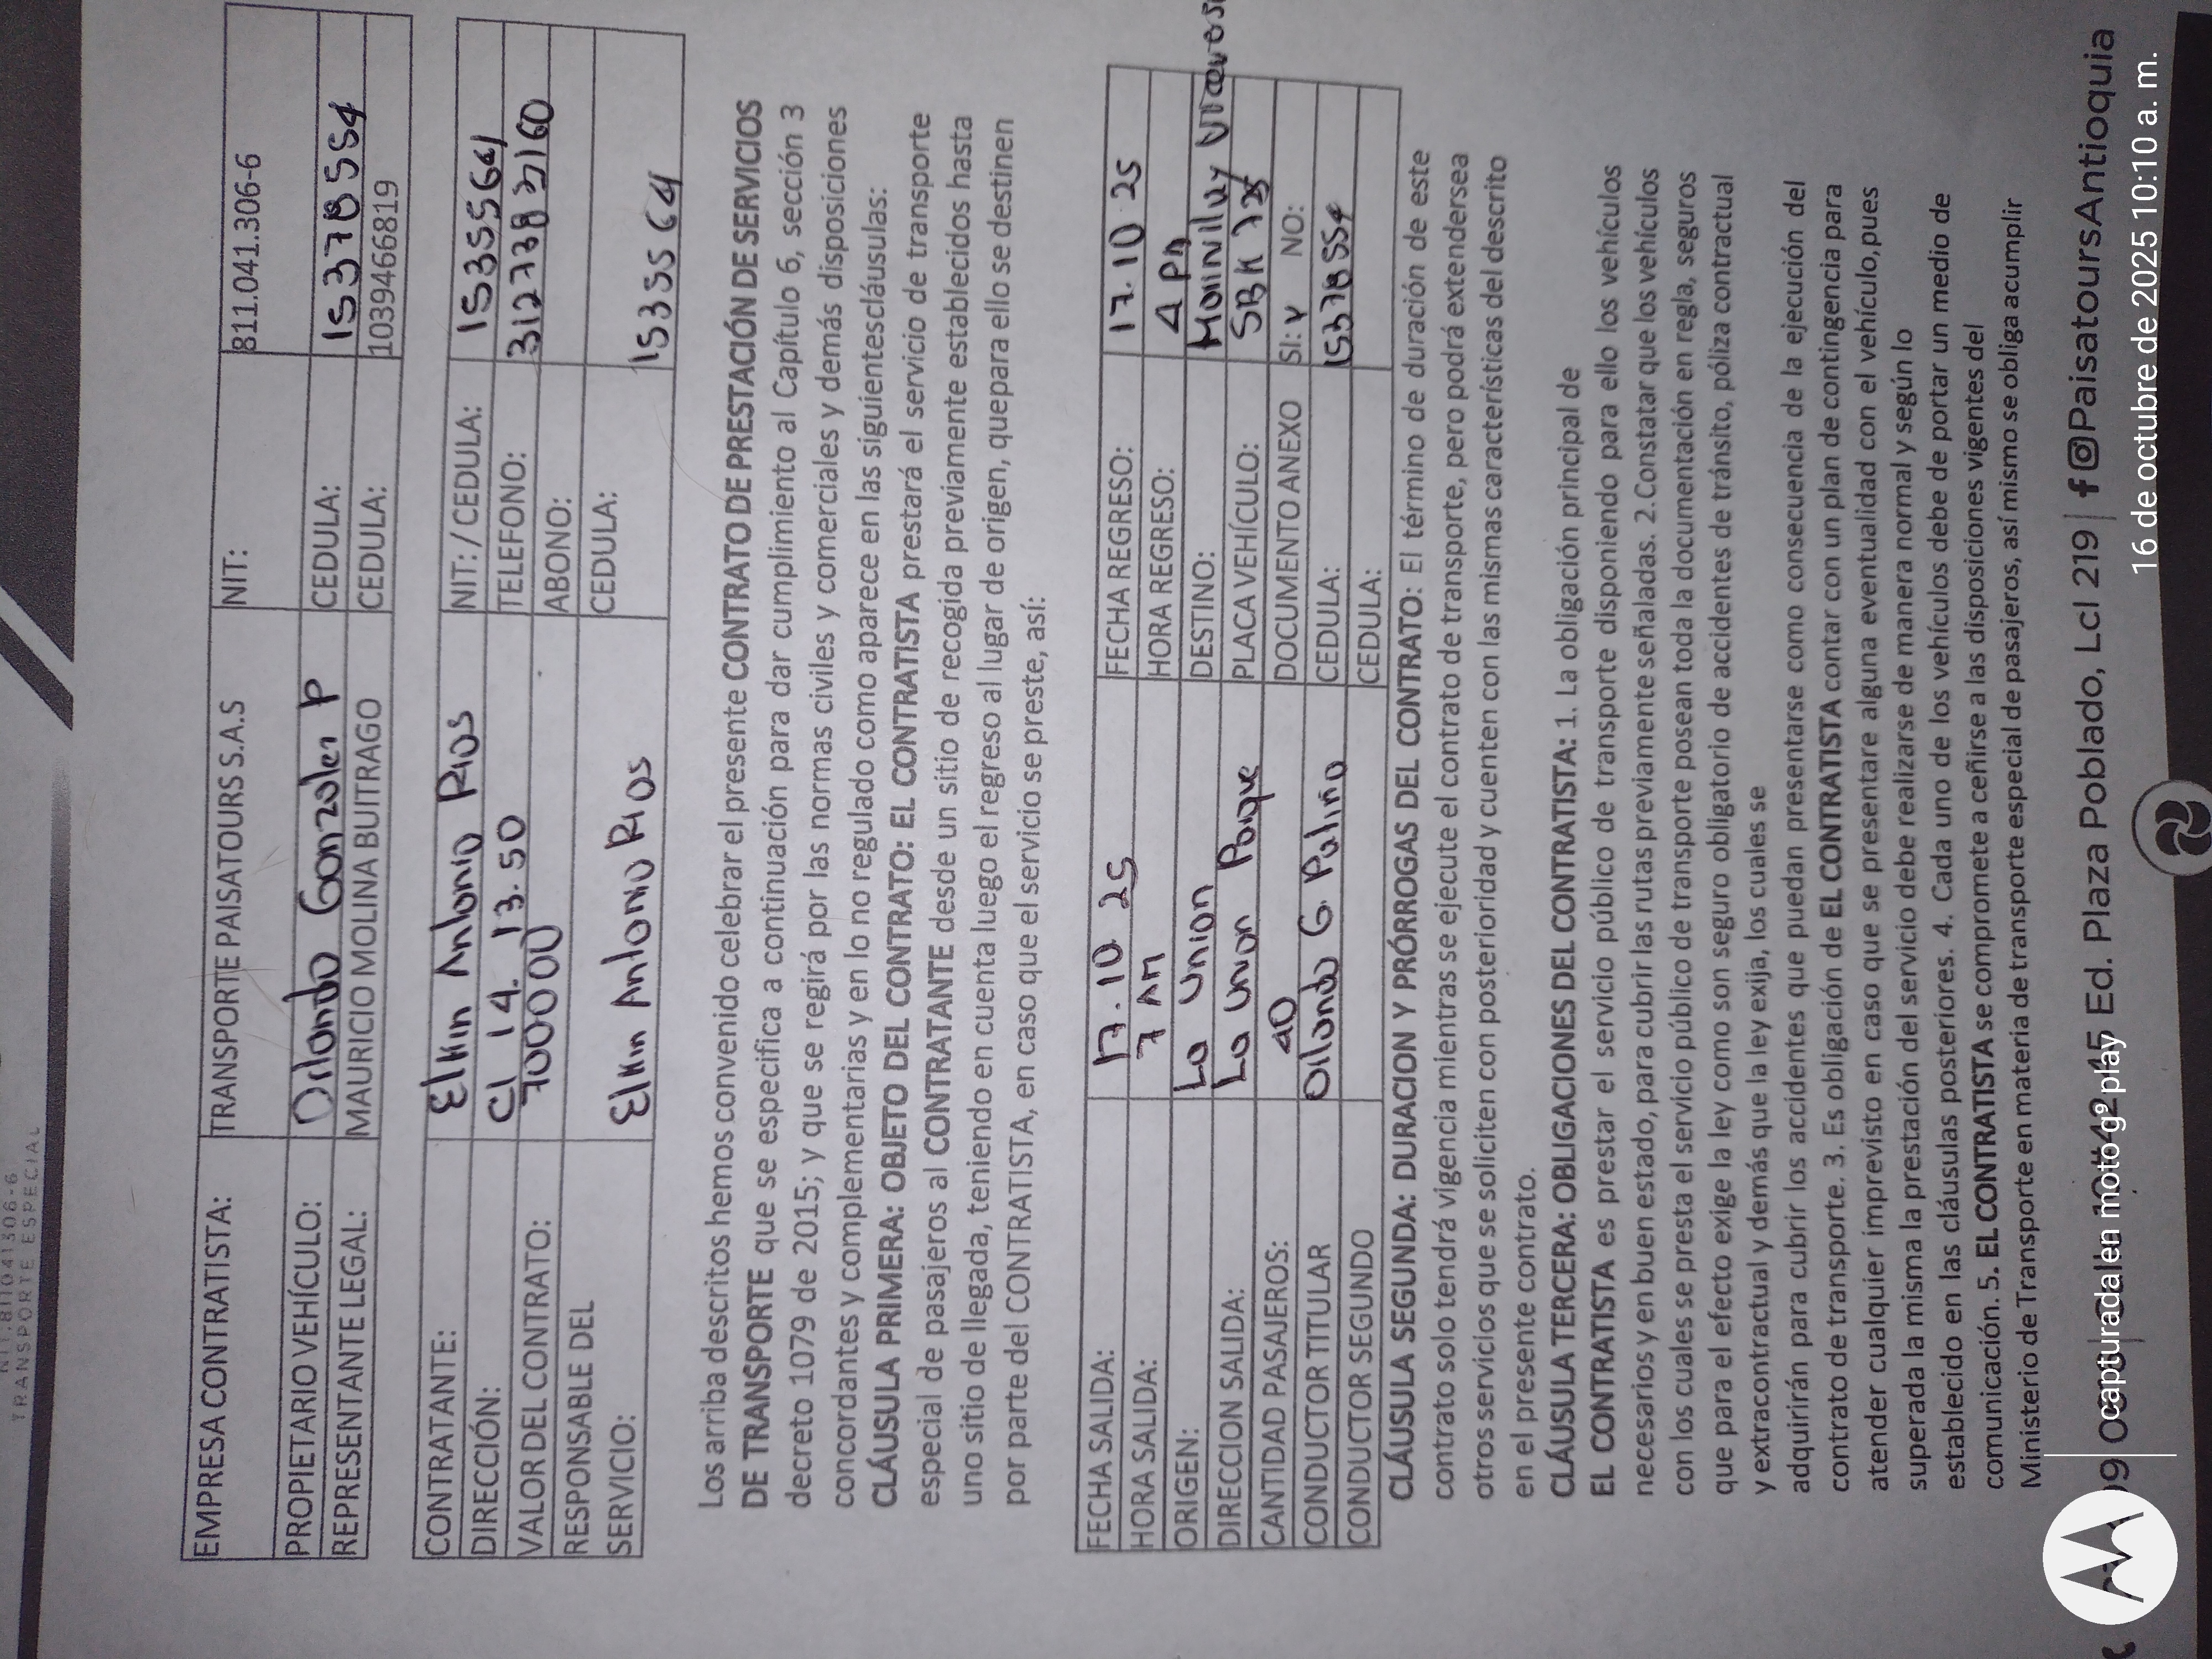 NIT.811041306-6
TRANSPORTE ESPECIAL
EMPRESA CONTRATISTA: TRANSPORTE PAISATOURS S.A.S NIT: 811.041.306-6
PROPIETARIO VEHÍCULO: Orlando Gonzalez P CEDULA: 15378554
REPRESENTANTE LEGAL: MAURICIO MOLINA BUITRAGO CEDULA: 1039466819
CONTRATANTE: Elkin Antonio Rios NIT: / CEDULA: 1535564
DIRECCIÓN: Cl 14. 13.50 TELEFONO: 3127383160
VALOR DEL CONTRATO: 700000 ABONO:
RESPONSABLE DEL CEDULA:
SERVICIO: Elkin Antonio Rios 1535564
Los arriba descritos hemos convenido celebrar el presente CONTRATO DE PRESTACIÓN DE SERVICIOS
DE TRANSPORTE que se especifica a continuación para dar cumplimiento al Capítulo 6, sección 3
decreto 1079 de 2015; y que se regirá por las normas civiles y comerciales y demás disposiciones
concordantes y complementarias y en lo no regulado como aparece en las siguientescláusulas:
CLÁUSULA PRIMERA: OBJETO DEL CONTRATO: EL CONTRATISTA prestará el servicio de transporte
especial de pasajeros al CONTRATANTE desde un sitio de recogida previamente establecidos hasta
uno sitio de llegada, teniendo en cuenta luego el regreso al lugar de origen, quepara ello se destinen
por parte del CONTRATISTA, en caso que el servicio se preste, así:
FECHA SALIDA: 17.10 25 FECHA REGRESO: 17.10 25
HORA SALIDA: 7 AM HORA REGRESO: 4 PM
ORIGEN: La Union DESTINO:
DIRECCION SALIDA: La Union Parque PLACA VEHÍCULO: SBK 725
CANTIDAD PASAJEROS: 40 DOCUMENTO ANEXO SI: NO:
CONDUCTOR TITULAR Orlando G. Patiño CEDULA: 15378554
CONDUCTOR SEGUNDO CEDULA:
CLÁUSULA SEGUNDA: DURACION Y PRÓRROGAS DEL CONTRATO: El término de duración de este
contrato solo tendrá vigencia mientras se ejecute el contrato de transporte, pero podrá extendersea
otros servicios que se soliciten con posterioridad y cuenten con las mismas características del descrito
en el presente contrato.
CLÁUSULA TERCERA: OBLIGACIONES DEL CONTRATISTA: 1. La obligación principal de
EL CONTRATISTA es prestar el servicio público de transporte disponiendo para ello los vehículos
necesarios y en buen estado, para cubrir las rutas previamente señaladas. 2.Constatar que los vehículos
con los cuales se presta el servicio público de transporte posean toda la documentación en regla, seguros
que para el efecto exige la ley como son seguro obligatorio de accidentes de tránsito, póliza contractual
y extracontractual y demás que la ley exija, los cuales se
adquirirán para cubrir los accidentes que puedan presentarse como consecuencia de la ejecución del
contrato de transporte. 3. Es obligación de EL CONTRATISTA contar con un plan de contingencia para
atender cualquier imprevisto en caso que se presentare alguna eventualidad con el vehículo,pues
superada la misma la prestación del servicio debe realizarse de manera normal y según lo
establecido en las cláusulas posteriores. 4. Cada uno de los vehículos debe de portar un medio de
comunicación. 5. EL CONTRATISTA se compromete a ceñirse a las disposiciones vigentes del
Ministerio de Transporte en materia de transporte especial de pasajeros, así mismo se obliga acumplir
Ed. Plaza Poblado, Lcl 219 | @PaisatoursAntioquia
capturada en moto g⁹ play
16 de octubre de 2025 10:10 a. m.